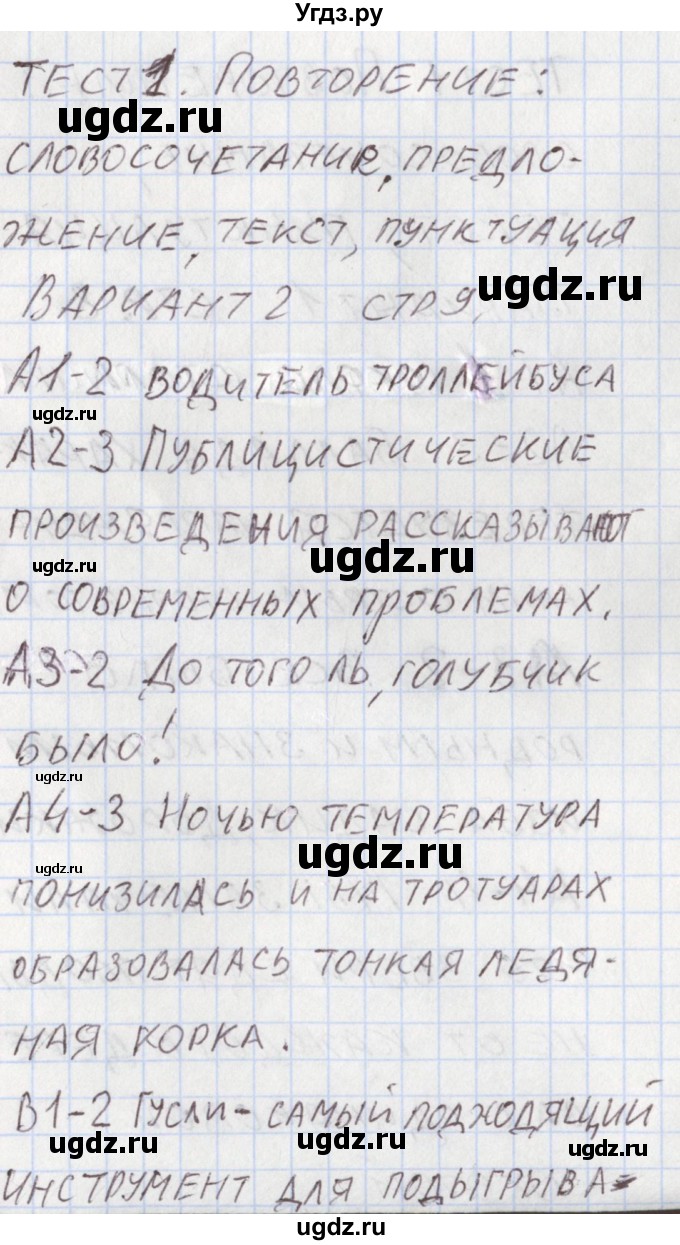 Угдз.ру
ТЕСТ 1. ПОВТОРЕНИЕ:
ugdz.ru
СЛОВОСОЧЕТАНИЕ, ПРЕДЛО-
ЖЕНИЕ, ТЕКСТ, ПУНКТУАЦИЯ
ugdz.ru
ВАРИАНТ 2 СТР 9,
А1-2 ВОДИТЕЛЬ ТРОЛЛЕЙБУСА
ugdz.ru
А2-3 ПУБЛИЦИСТИЧЕСКИЕ
ПРОИЗВЕДЕНИЯ РАССКАЗЫВАЮТ
ugdz.ru
ugdz.ru
О СОВРЕМЕННЫХ ПРОБЛЕМАХ.
А3-2 ДО ТОГО ЛЬ, ГОЛУБЧИК
БЫЛО!
ugdz.ru
А4-3 НОЧЬЮ ТЕМПЕРАТУРА
ugdz.ru
ugdz.ru
ПОНИЗИЛАСЬ И НА ТРОТУАРАХ
ОБРАЗОВАЛАСЬ ТОНКАЯ ЛЕДЯ-
НАЯ КОРКА.
В1-2 ГУСЛИ - САМЫЙ ПОДХОДЯЩИЙ
ugdz.ru
ugdz.ru
ugdz.ru
ИНСТРУМЕНТ ДЛЯ ПОДЫГРЫВА-
ugdz.ru